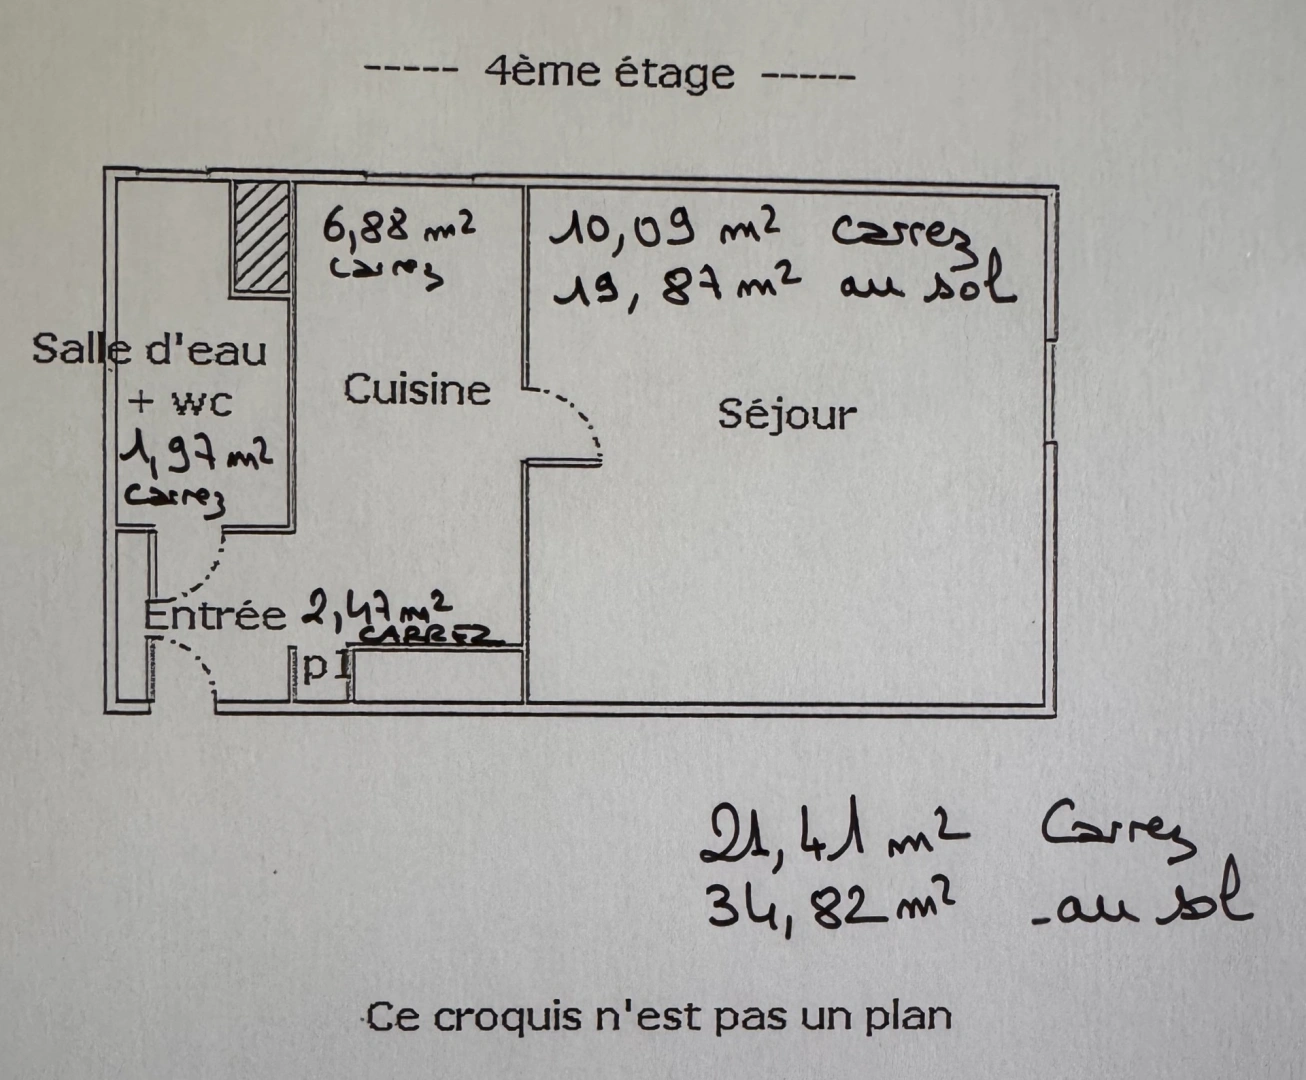 ----- 4ème étage -----
6,88 m²
carrez
10,09 m² carrez
19,87 m² au sol
Salle d'eau
+ WC
1,97 m²
carrez
Cuisine
Séjour
Entrée 2,47 m²
CARREZ
pl
21,41 m² Carrez
34,82 m² - au sol
Ce croquis n'est pas un plan